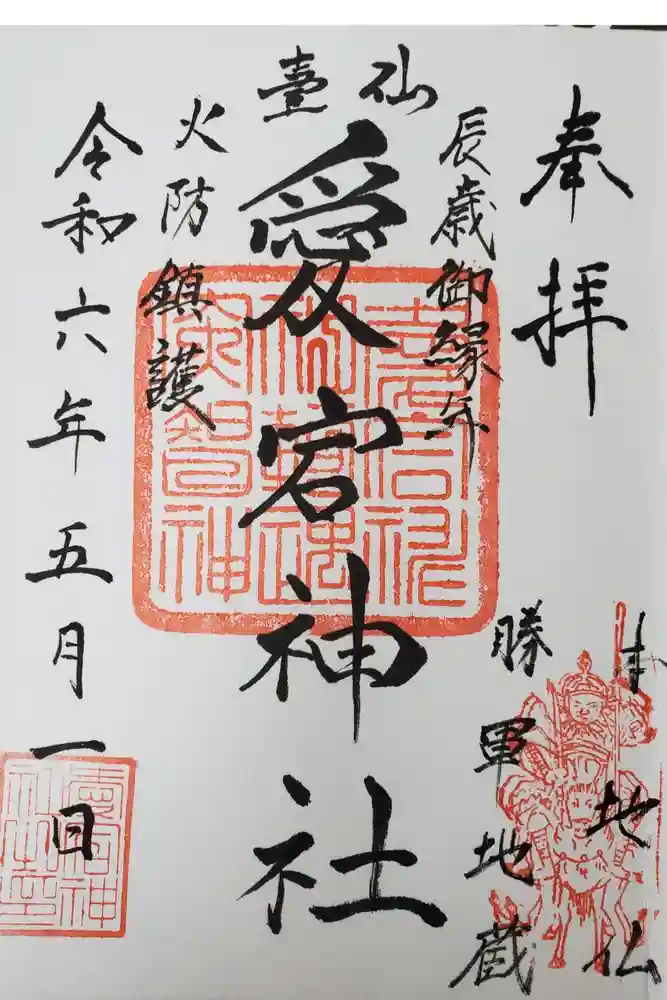 奉拝
本地仏
勝軍地蔵
辰歳御縁年
仙臺
愛宕神社
火防鎮護
令和六年五月一日
愛宕神